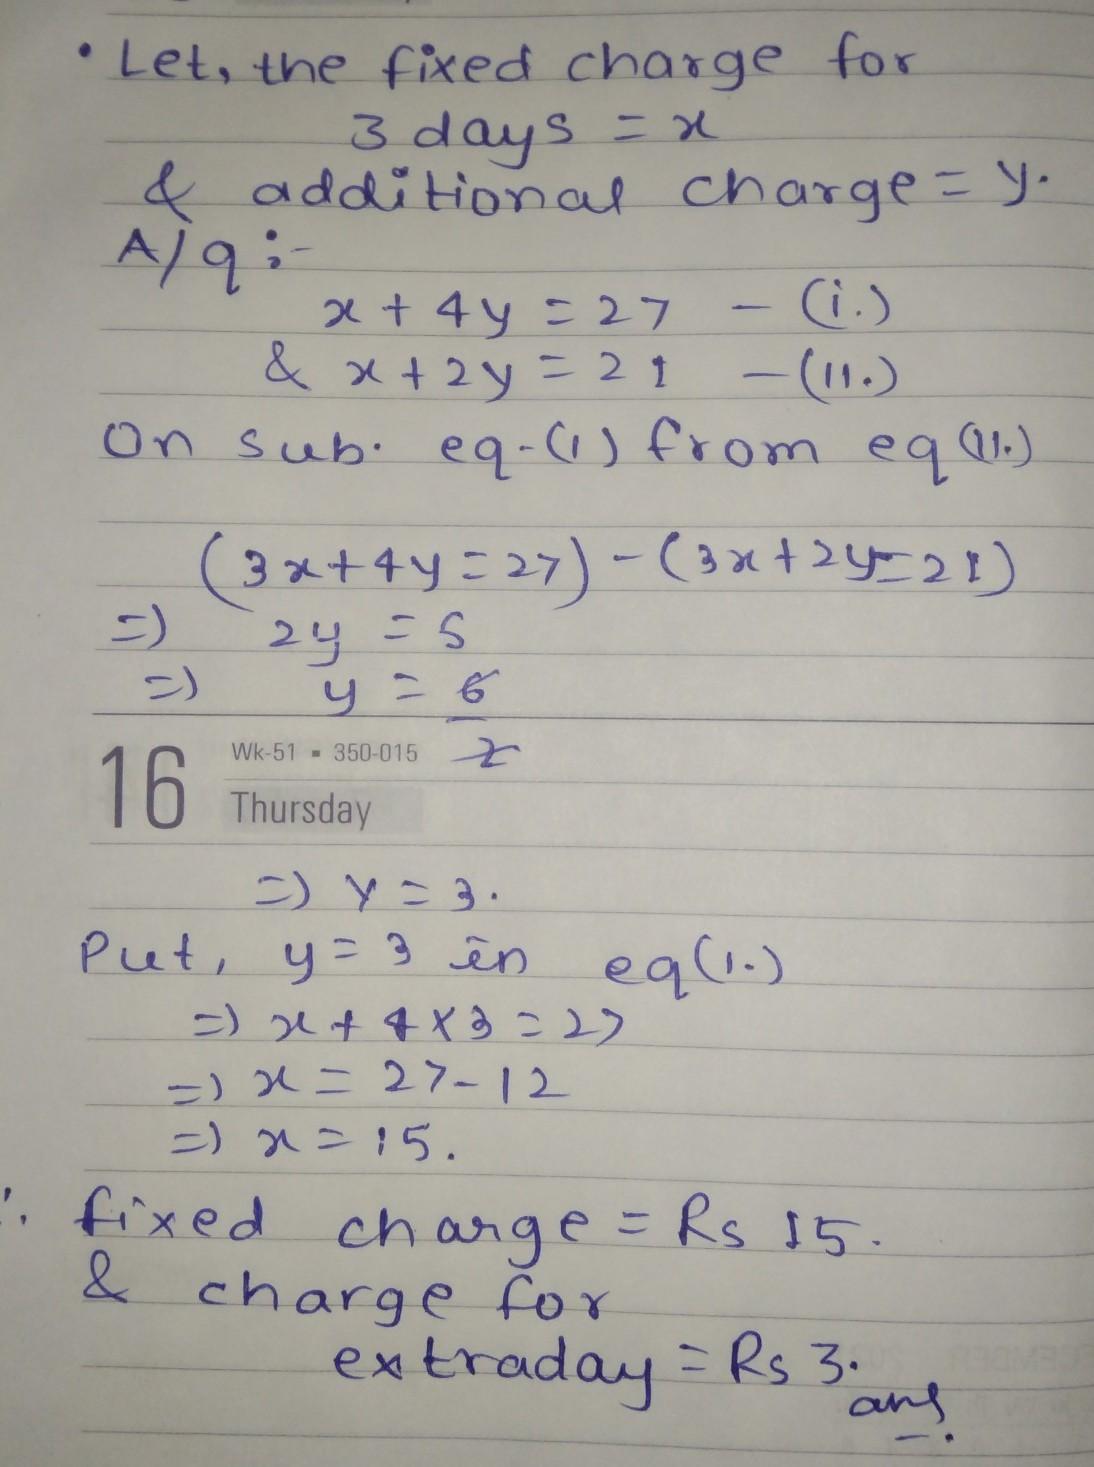 • Let, the fixed charge for
3 days = x
& additional charge = y.
A/q :-
x + 4y = 27 - (i.)
& x + 2y = 21 - (II.)
On sub. eq-(1) from eq (II.)
(3x + 4y = 27) - (3x + 2y = 21)
=) 2y = 5
=) y = 6
2
16
Wk-51 ▪ 350-015
Thursday
=) Y = 3.
Put, y = 3 in eq (1.)
=) x + 4 x 3 = 27
=) x = 27 - 12
=) x = 15.
∴ fixed charge = Rs 15.
& charge for
extraday = Rs 3.
ans.